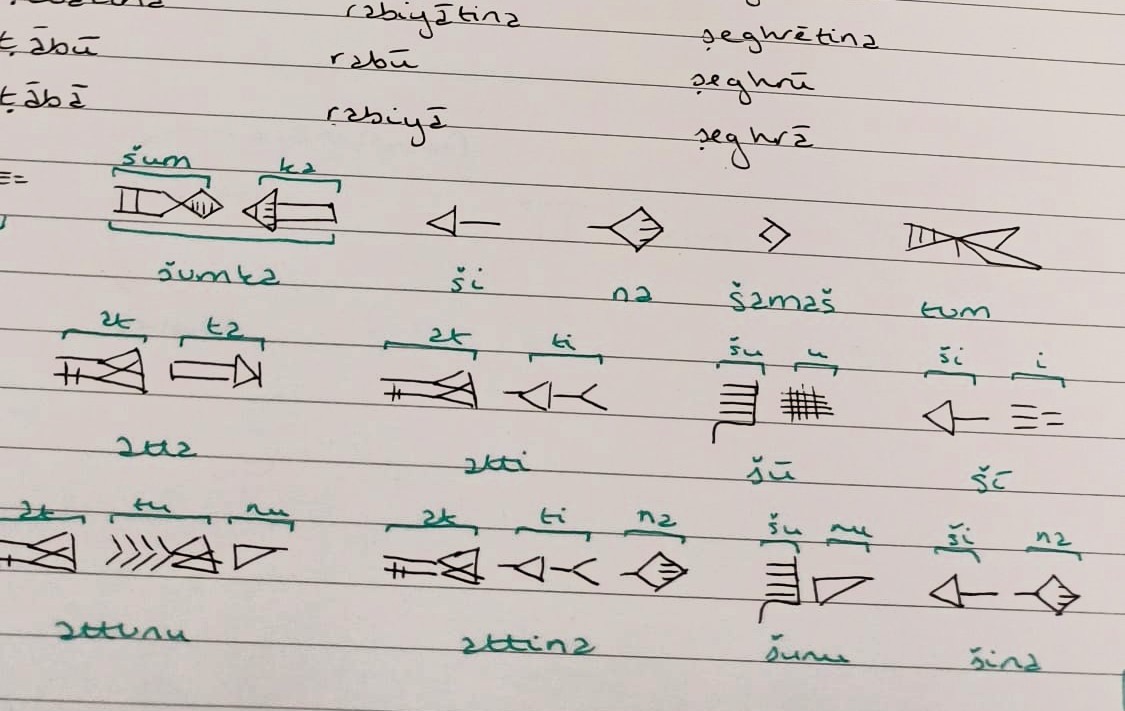 rabiyātina ṣeghrētina
ṭābū rabū ṣeghrū
ṭābā rabiyā ṣeghrā
šum ka
šumka ši na šamaš tum
at ta at ti šu u ši i
atta atti šū šī
at tu nu at ti na šu nu ši na
attunu attina šunu šina